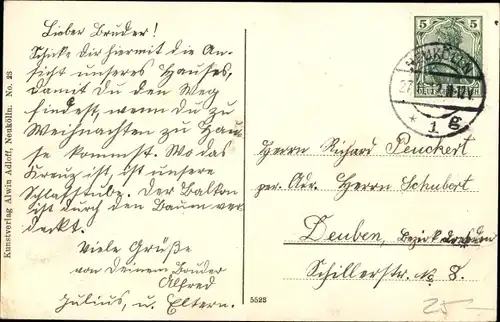 Lieber Bruder!
Schicke Dir hiermit die An-
sicht unseres Hauses,
damit Du den Weg
findest, wenn Du zu
Weihnachten zu Hau-
se kommst. Wo das
Kreuz ist, ist unsere
Schlafstube. Der Balkon
ist durch den Baum ver-
deckt.
Viele Grüße
von Deinem Bruder
Alfred
Julius, u. Eltern.
Kunstverlag Alwin Adloff, Neukölln. No. 23
5
5
NEUKÖLLN
* 1 g
Herrn Richard Peuckert
per. Adr. Herrn Schubert
Deuben, Bezirk Dresden
Schillerstr. No 8.
5523
25-